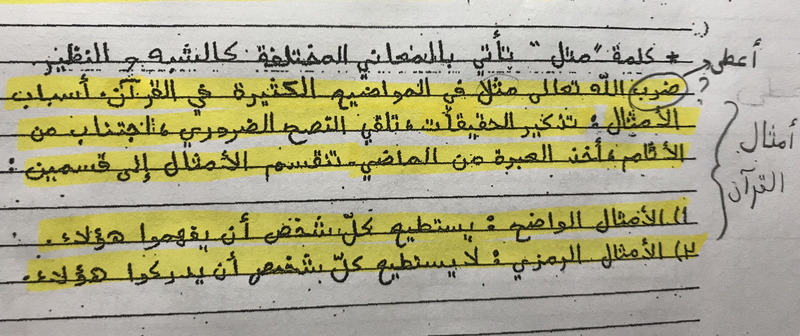 * كلمة "مثل" تأتي بالمعاني المختلفة كالشبه و النظير.
أعطى
ضرب الله تعالى مثلا في المواضيع الكثيرة في القرآن. أسباب
الأمثال: تذكير الحقيقات، تلقي النصح الضروري، اجتناب من
الآثام، أخذ العبرة من الماضي. تنقسم الأمثال إلى قسمين:
أمثال
القرآن
١) الأمثال الواضح: يستطيع كلّ شخص أن يفهموا هؤلاء.
٢) الأمثال الرمزي: لا يستطيع كلّ شخص أن يدركوا هؤلاء.